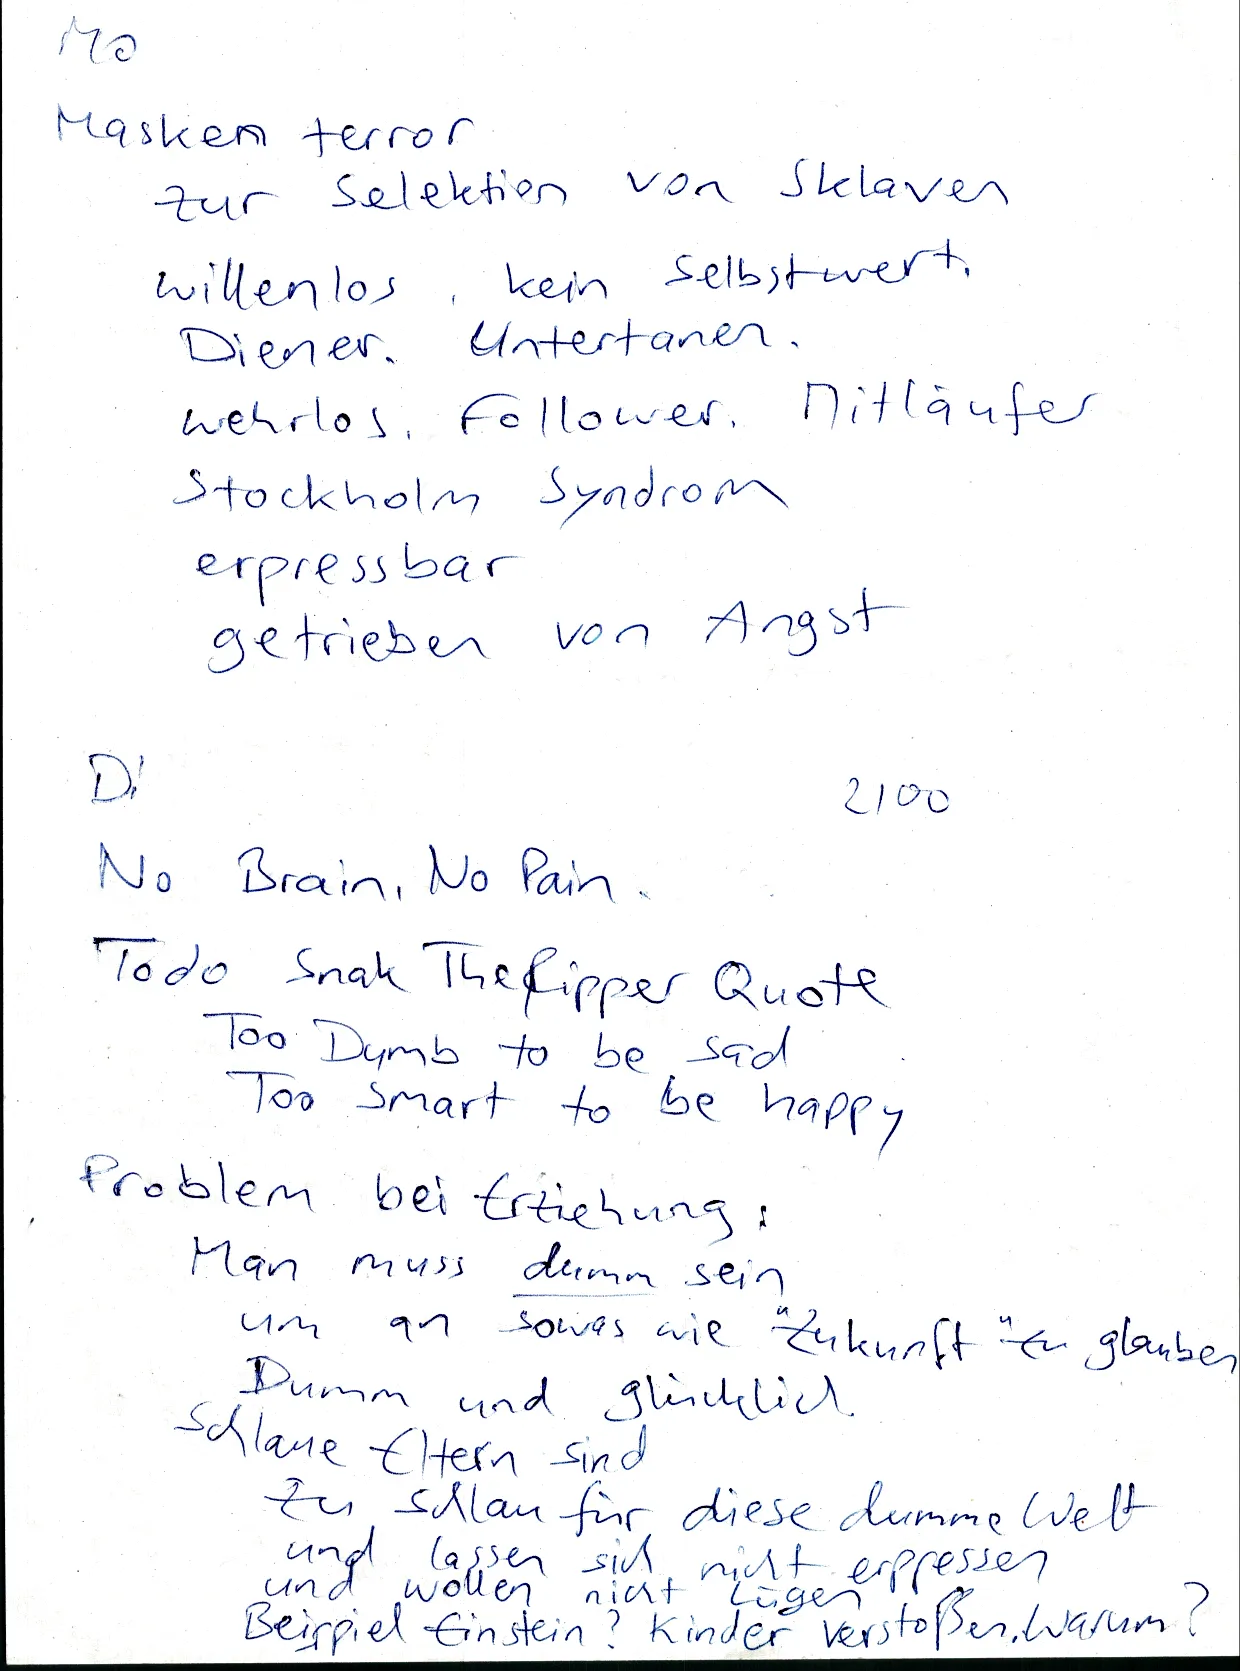 Mo
Masken terror
zur Selektion von Sklaven
willenlos, kein Selbstwert.
Diener. Untertanen.
wehrlos. Follower. Mitläufer
Stockholm Syndrom
erpressbar
getrieben von Angst
Di
2100
No Brain, No Pain.
Todo Snak The Ripper Quote
Too Dumb to be sad
Too smart to be happy
Problem bei Erziehung:
Man muss dumm sein
um an sowas wie "Zukunft" zu glauben
Dumm und glücklich.
Schlaue Eltern sind
zu schlau für diese dumme Welt
und lassen sich nicht erpressen
und wollen nicht lügen
Beispiel Einstein? Kinder verstoßen. Warum?